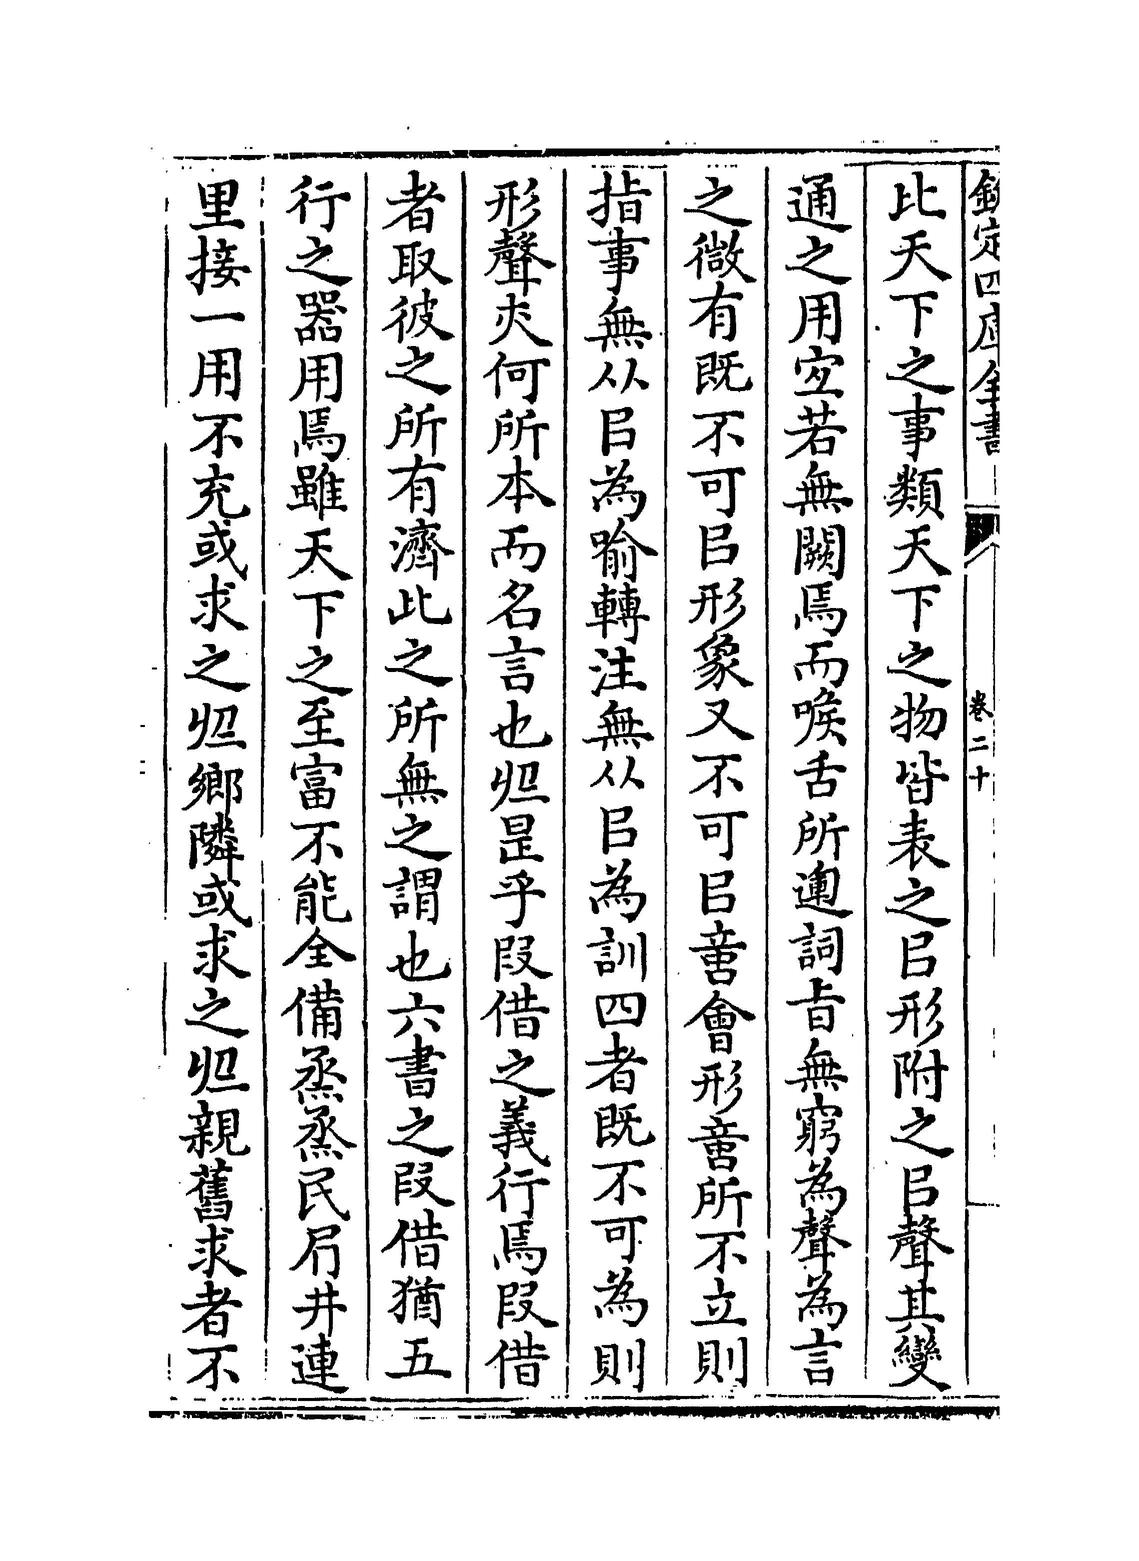 欽定四庫全書
卷二十
比天下之事類天下之物皆表之㠯形附之㠯聲其變
通之用宐若無闕焉而喉舌所逌詞旨無窮為聲為言
之微有既不可㠯形象又不可㠯𠶷會形𠶷所不立則
指事無从㠯為喻轉注無从㠯為訓四者既不可為則
形聲亦何所本而名言也於昰乎叚借之義行焉叚借
者取彼之所有濟此之所無之謂也六書之叚借猶五
行之器用焉雖天下之至富不能全備烝烝民凥井連
里接一用不充或求之於鄉隣或求之於親舊求者不